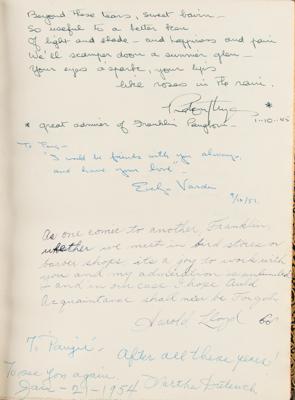 Beyond these tears, sweet bairn –
So useful to a better ken
Of light and shade – and happiness and pain
We'll scamper down a summer glen –
Your eyes aspark, your lips
like roses in the rain.
*
1-10-45
* great admirer of Franklin Pangborn –
To Pang –
"I would be friends with you always,
and have your love" –
Evelyn Varden
9/12/51.
As one comic to another, Franklin,
whether we meet in bird stores or
barber shops its a joy to work with
you and my admiration is unbounded
– and in our case I hope Auld
Acquaintance shall never be Forgot
Harold Lloyd
To "Pangie" – After all these years!
To see you again.
Jan – 21 – 1954 Martha